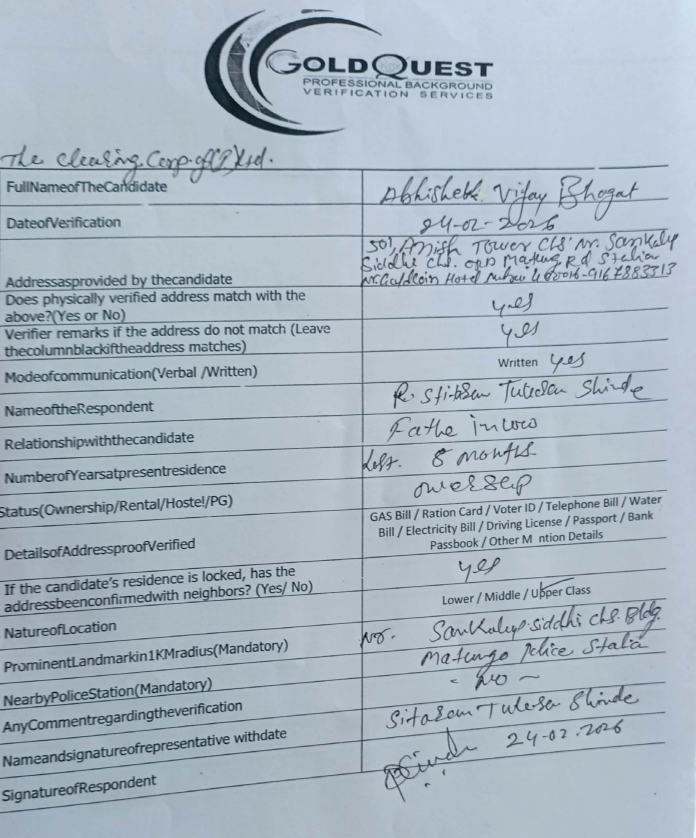 GOLDQUEST
PROFESSIONAL BACKGROUND
VERIFICATION SERVICES
The Clearing Corp. of (I) Ltd.
FullNameofTheCandidate Abhishek Vijay Bhagat
DateofVerification 24-02-2026
501, Amish Tower Chs. Nr. Sankalp
Siddhi Chs. opp Matung Rd Station
Addressasprovided by thecandidate Nr. Goldcoin Hotel 400016-9167883313
Does physically verified address match with the
above?(Yes or No) yes
Verifier remarks if the address do not match (Leave
thecolumnblackiftheaddress matches) yes
Modeofcommunication(Verbal /Written) Written yes
NameoftheRespondent Shinde
Relationshipwiththecandidate Fathe in
NumberofYearsatpresentresidence Last. 8 months.
Status(Ownership/Rental/Hostel/PG)
GAS Bill / Ration Card / Voter ID / Telephone Bill / Water
Bill / Electricity Bill / Driving License / Passport / Bank
DetailsofAddressproofVerified Passbook / Other M ntion Details
If the candidate's residence is locked, has the
addressbeenconfirmedwith neighbors? (Yes/ No) yes
NatureofLocation Lower / Middle / Upper Class
ProminentLandmarkin1KMradius(Mandatory) Nr. Sankalup siddhi chs. Bldg.
NearbyPoliceStation(Mandatory) Matunga Police Statio
AnyCommentregardingtheverification - No ~
Nameandsignatureofrepresentative withdate Shinde
SignatureofRespondent 24-02.2026